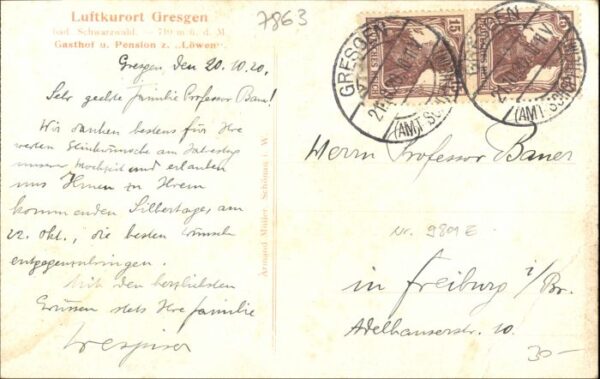 Luftkurort Gresgen
bad. Schwarzwald. — 710 m ü. d. M.
Gasthof u. Pension z. „Löwen"
7863
Gresgen den 20.10.20.
Sehr geehrte Familie Professor Bauer!
Wir danken bestens für Ihre
werten Glückwünsche am Jahrestag
unserer Hochzeit und erlauben
uns Ihnen zu Ihrem
kommenden Silbertage, am
22. Okt., die besten Wünsche
entgegenzubringen.
Mit den herzlichsten
Grüssen stets Ihre Familie
Armand Müller, Schönau i. W.
GRESGEN
(AMT SCHOPFHEIM)
15
DEUTSCHES REICH
GRESGEN
(AMT SCHOPFHEIM)
15
Herrn Professor Bauer
Nr. 9801 E
in Freiburg i/Br.
Adelhauserstr. 10.
30-